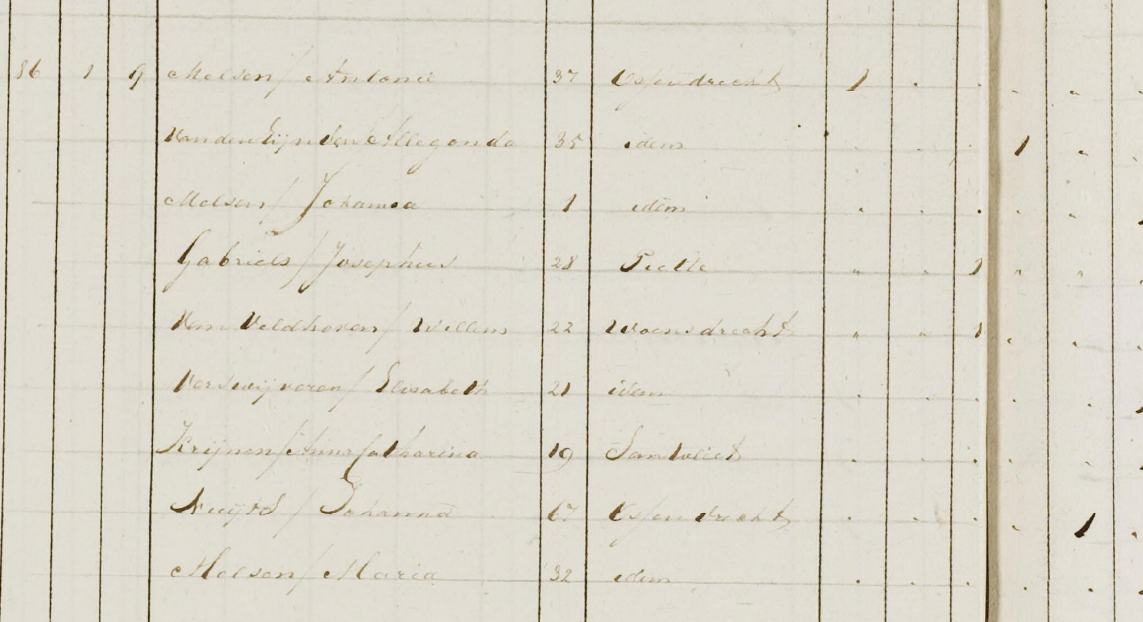 86 1 9 Melsen / Antonie 37 Ossendrecht 1
Van den Eijnden Allegonda 35 idem 1
Melsen / Johanna 1 idem
Gabriels / Josephus 28 1
Van Veldhoven / Willem 22 Woensdrecht 1
Verswijveren / Elisabeth 21 idem
Krijnen / Anna Catharina 19 Santvliet
Nuijts / Johanna 67 Ossendrecht 1
Melsen / Maria 32 idem